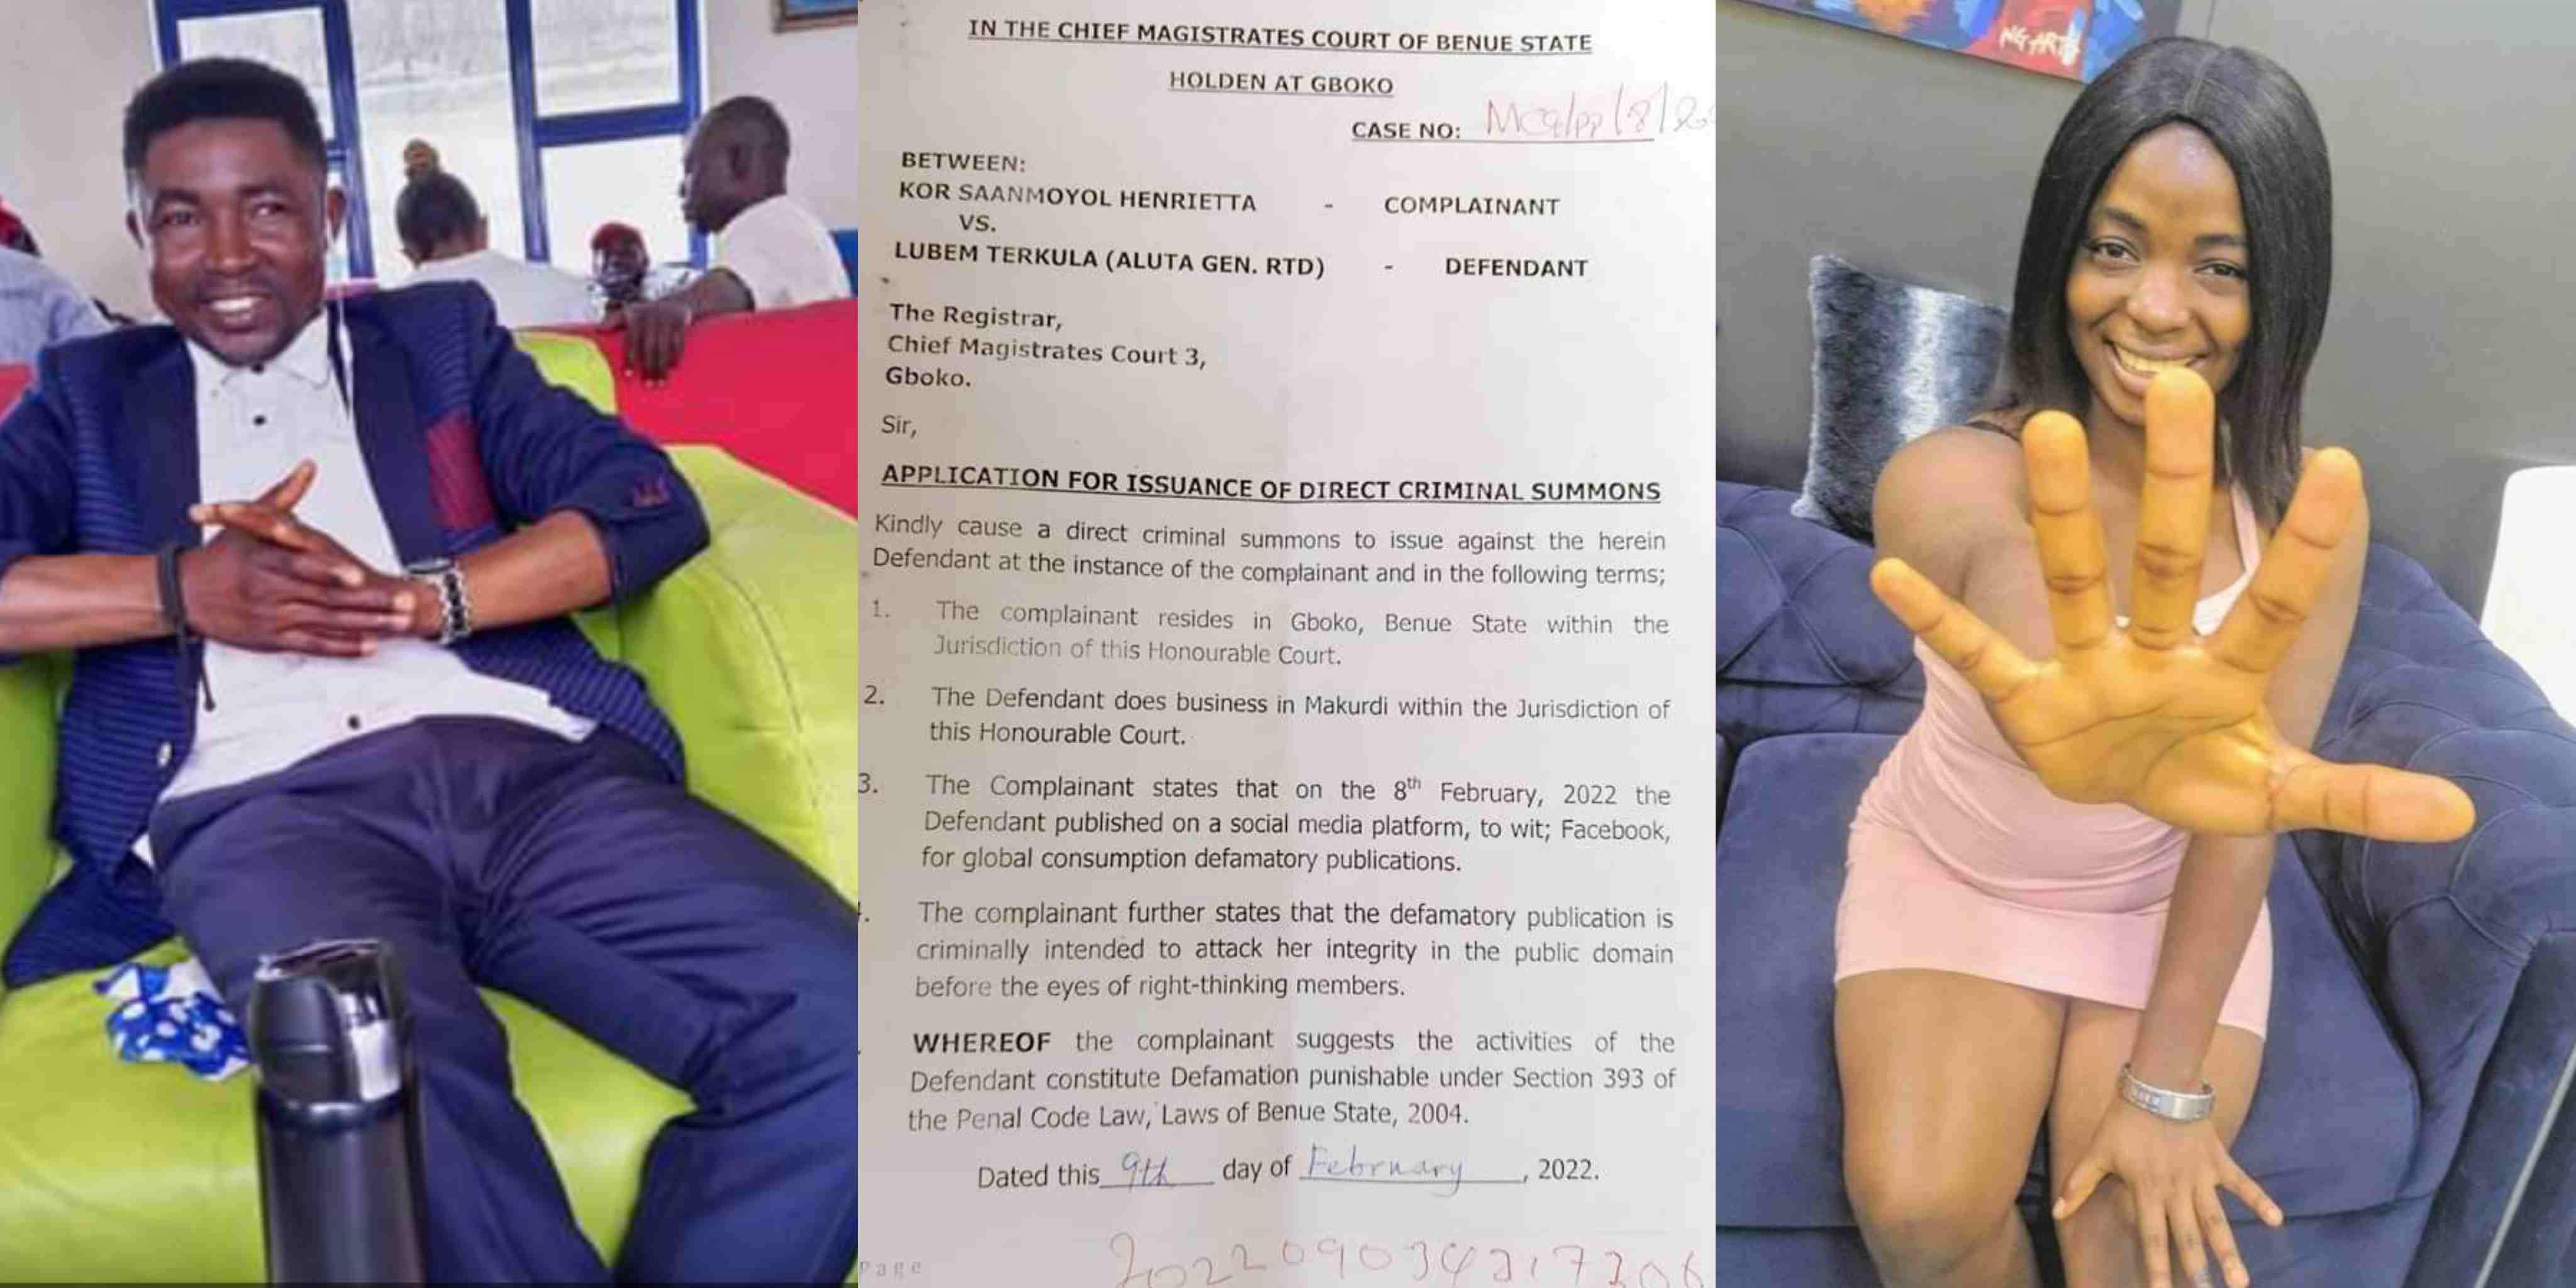 IN THE CHIEF MAGISTRATES COURT OF BENUE STATE
HOLDEN AT GBOKO
CASE NO:
BETWEEN:
KOR SAANMOYOL HENRIETTA - COMPLAINANT
VS.
LUBEM TERKULA (ALUTA GEN. RTD) - DEFENDANT
The Registrar,
Chief Magistrates Court 3,
Gboko.
Sir,
APPLICATION FOR ISSUANCE OF DIRECT CRIMINAL SUMMONS
Kindly cause a direct criminal summons to issue against the herein
Defendant at the instance of the complainant and in the following terms;
1. The complainant resides in Gboko, Benue State within the
Jurisdiction of this Honourable Court.
2. The Defendant does business in Makurdi within the Jurisdiction of
this Honourable Court.
3. The Complainant states that on the 8th February, 2022 the
Defendant published on a social media platform, to wit; Facebook,
for global consumption defamatory publications.
. The complainant further states that the defamatory publication is
criminally intended to attack her integrity in the public domain
before the eyes of right-thinking members.
WHEREOF the complainant suggests the activities of the
Defendant constitute Defamation punishable under Section 393 of
the Penal Code Law, Laws of Benue State, 2004.
Dated this 9th day of February, 2022.
Page
NG ART